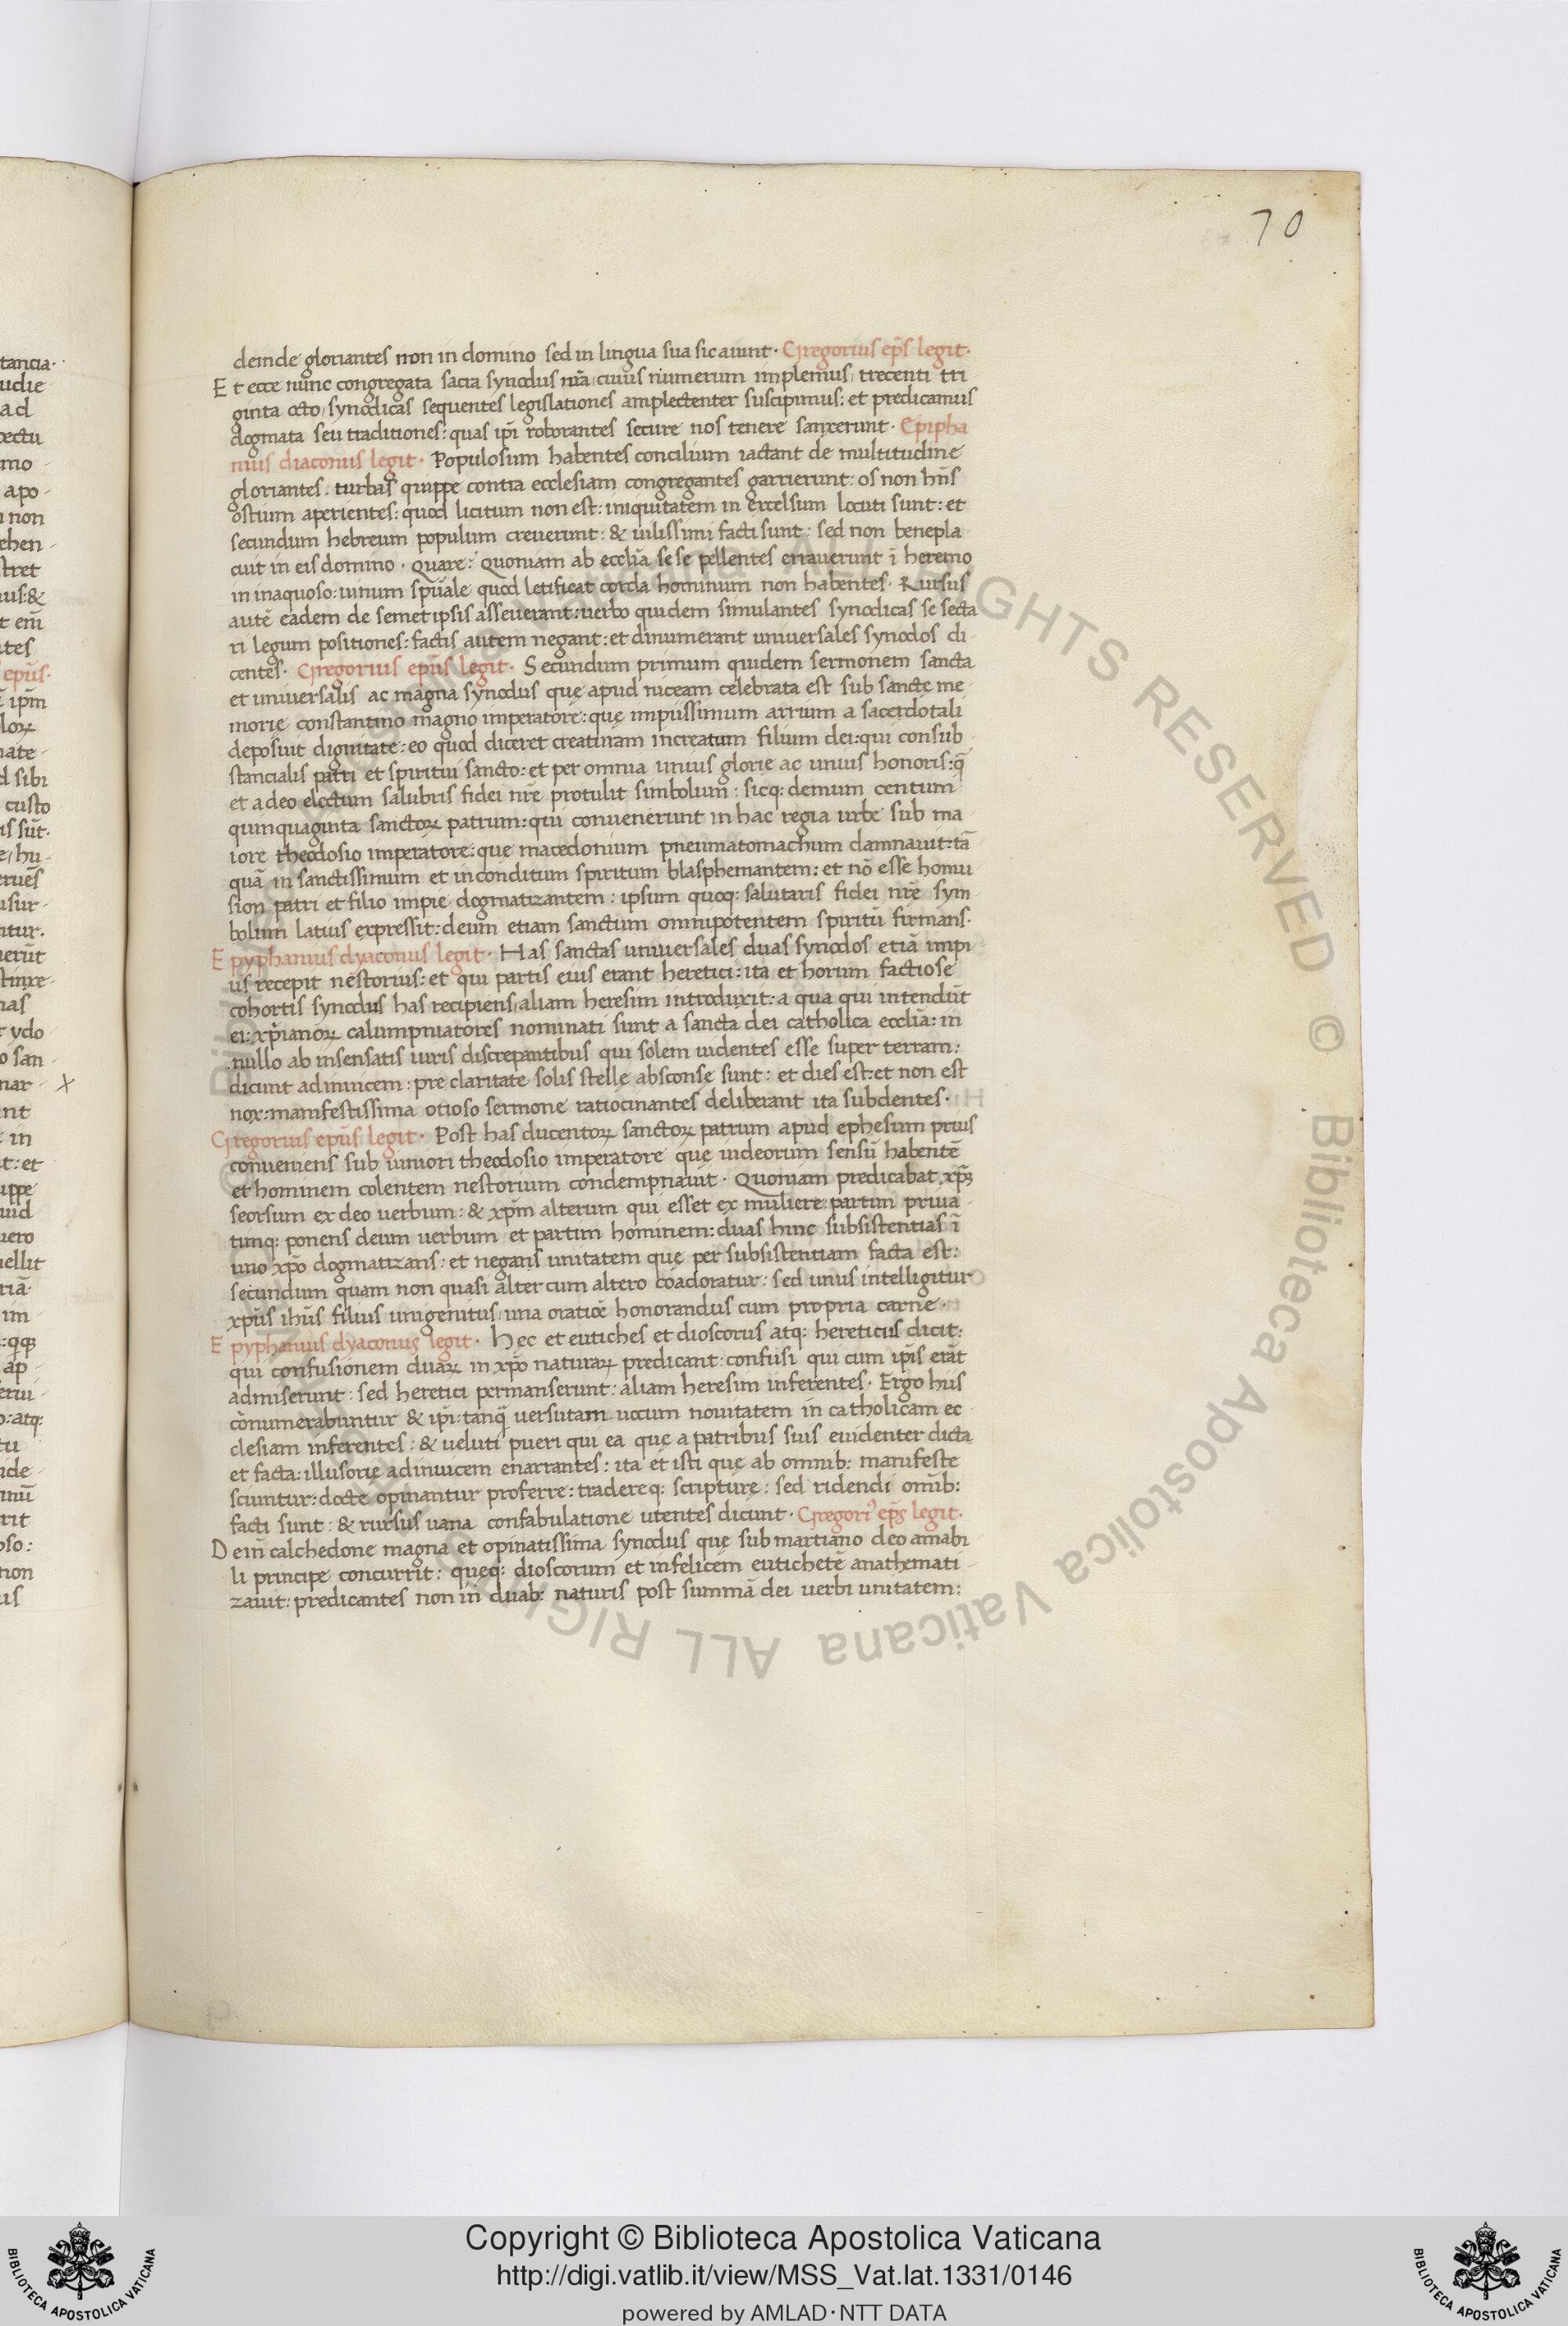 70
deinde gloriantes non in domino sed in lingua sua sic aiunt· Gregorius ep̅s legit·
Et ecce nunc congregata sacra synodus nr̅a, cuius numerum implemus, trecenti tri
ginta octo, synodicas sequentes legislationes amplectenter suscipimus: et predicamus
dogmata seu traditiones: quas ip̅i roborantes secure nos tenere sanxerunt· Epipha
nius diaconus legit· Populosum habentes concilium iactant de multitudine
gloriantes. turbas quippe contra ecclesiam congregantes garrierunt: os non hn̅s
ostium aperientes: quod licitum non est: iniquitatem in excelsum locuti sunt: et
secundum hebreum populum creuerunt: & uilissimi facti sunt: sed non benepla
cuit in eis domino· Quare: Quoniam ab eccl̅ia sese pellentes errauerunt i̅ heremo
in inaquoso: uinum spu̅ale quod letificat corda hominum non habentes· Rursus
aute̅ eadem de semetipsis asseuerant: uerbo quidem simulantes synodicas se secta
ri legum positiones: factis autem negant: et dinumerant uniuersales synodos di-
centes· Gregorius epu̅s legit· Secundum primum quidem sermonem sancta
et uniuersalis ac magna synodus que apud niceam celebrata est sub sancte me
morie constantino magno imperatore: que impiissimum arrium a sacerdotali
deposuit dignitate: eo quod diceret creaturam increatum filium dei: qui consub
stancialis patri et spiritui sancto: et per omnia unius glorie ac unius honoris: q̅
et adeo electum salubris fidei nr̅e protulit simbolum: sicq: demum centum
quinquaginta sanctoꝝ patrum: qui conuenerunt in hac regia urbe sub ma
iore theodosio imperatore: que macedonium pneumatomachum damnauit: ta̅
qua̅ in sanctissimum et inconditum spiritum blasphemantem: et no̅ esse homu
sion patri et filio impie dogmatizantem: ipsum quoq: salutaris fidei nr̅e sym
bolum latius expressit: deum etiam sanctum omnipotentem spiritu̅ firmans·
Epyphanius dyaconus legit· Has sanctas uniuersales duas synodos etia̅ impi
us recepit nestorius: et qui partis eius erant heretici: ita et horum factiose
cohortis synodus has recipiens, aliam heresim introduxit: a qua qui intendu̅t
ei: xp̅ianoꝝ calumpniatores nominati sunt a sancta dei catholica eccl̅ia: in
nullo ab insensatis uiris discrepantibus qui solem uidentes esse super terram:
dicunt adinuicem: pre claritate solis stellę absconsę sunt: et dies est: et non est
nox: manifestissima otioso sermone ratiocinantes deliberant ita subdentes·
Gregorius epu̅s legit· Post has ducentoꝝ sanctoꝝ patrum apud ephesum prius
conueniens sub iuniori theodosio imperatore quę iudeorum sensu̅ habente̅
et hominem colentem nestorium condempnauit· Quoniam predicabat xp̅m
seorsum ex deo uerbum: & xp̅m alterum qui esset ex muliere: partim priua
timq: ponens deum uerbum, et partim hominem: duas hinc subsistentias i̅
uno xp̅o dogmatizans: et negans unitatem quę per subsistentiam facta est:
secundum quam non quasi alter cum altero coadoratur: sed unus intelligitur
xpu̅s ihu̅s filius unigenitus, una oratio̅e honorandus cum propria carne·
Epyphanius dyaconus legit· Hec et eutiches et dioscorus atq: hereticus dicit:
qui confusionem duaꝝ in xp̅o naturaꝝ predicant: confusi qui cum ip̅is era̅t
admiserunt: sed heretici permanserunt: aliam heresim inferentes· Ergo hiis
co̅numerabuntur & ip̅i: tanq̅ uersutam uocum nouitatem in catholicam ec
clesiam inferentes: & ueluti pueri qui ea quę a patribus suis euidenter dicta
et facta: illusorie adinuicem enarrantes: ita et isti quę ab omnib: manifeste
sciuntur: docte opinantur proferre: tradereq: scripture: sed ridendi om̅ib:
facti sunt: & rursus uana confabulatione utentes dicunt· Gregori' ep̅s legit·
Dein̅ calchedone magna et opinatissima synodus quę sub martiano deo amabi
li principe concurrit: quęq: dioscorum et infelicem eutichete̅ anathemati
zauit: predicantes non in duab: naturis post summa̅ dei uerbi unitatem:
Copyright © Biblioteca Apostolica Vaticana
http://digi.vatlib.it/view/MSS_Vat.lat.1331/0146
powered by AMLAD·NTT DATA